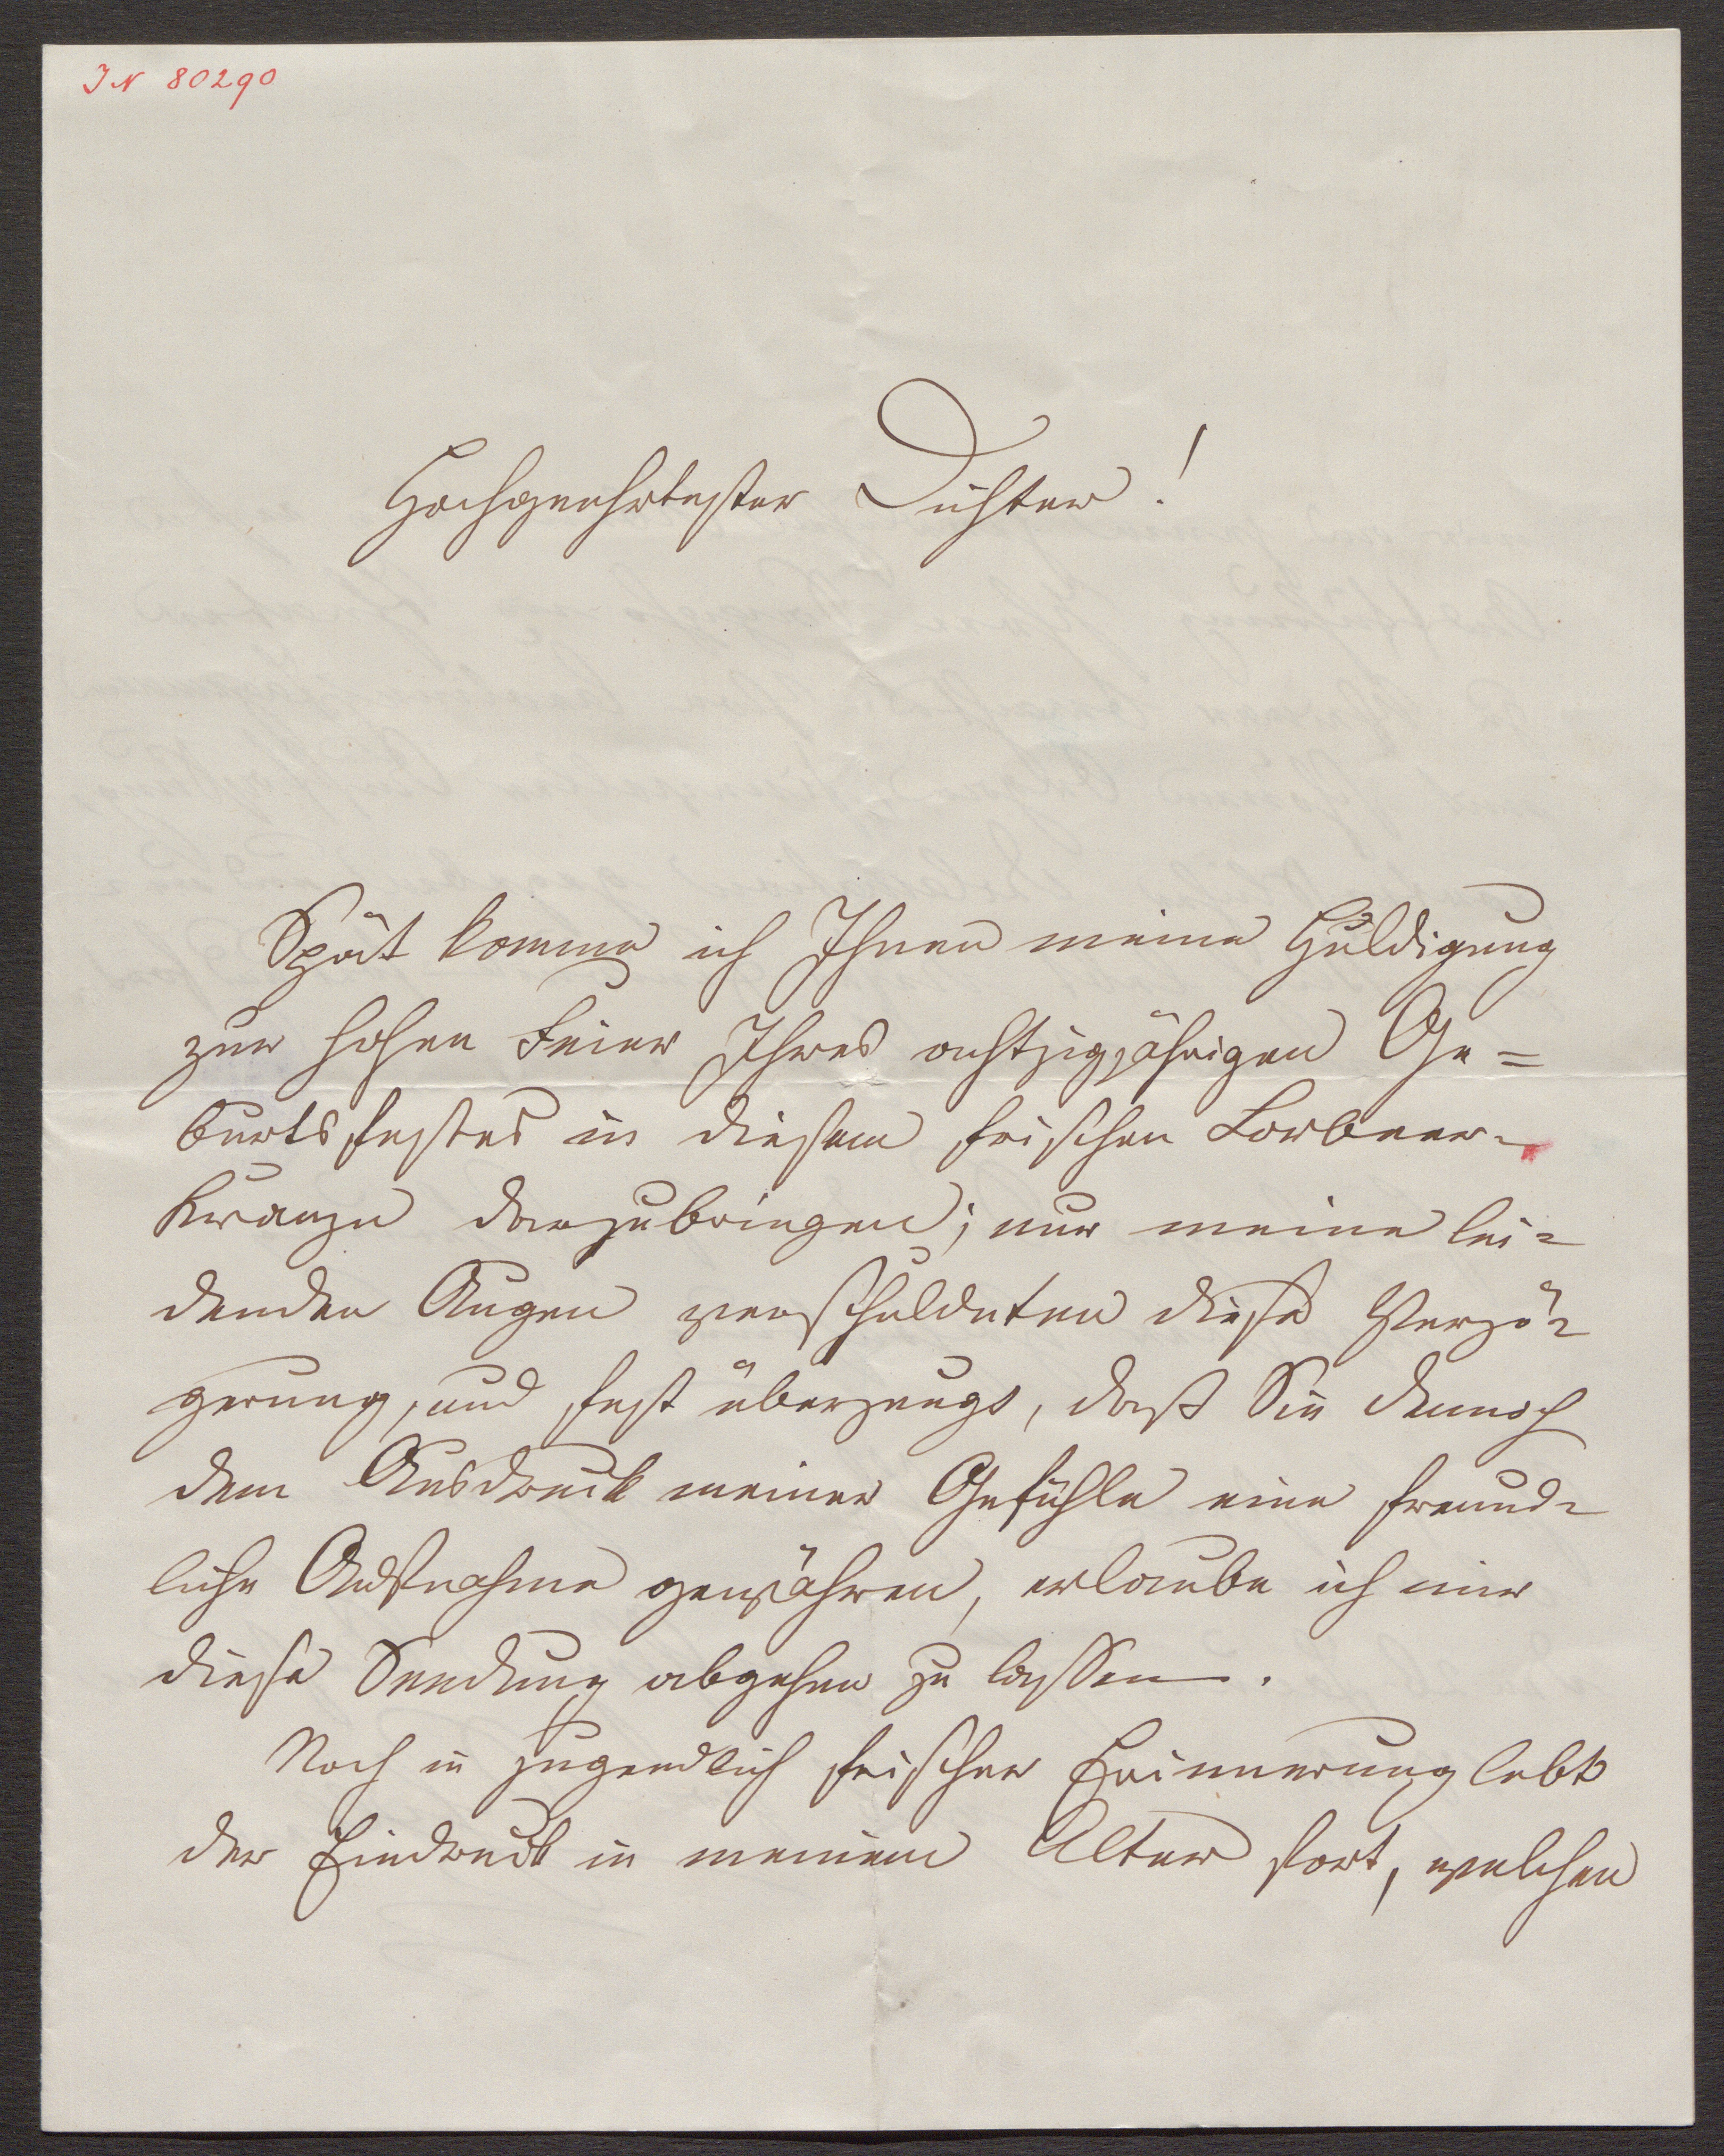 IN 80290
Hochgeehrtester Dichter!
Spät komme ich Ihnen meine Huldigung
zur hohen Feier Ihres achtzigjährigen Ge=
burtsfestes in diesem frischen Lorbeer-
Kranze darzubringen; nur meine lei-
denden Augen verschuldeten diese Verzö-
gerung, und fest überzeugt, daß Sie dennoch
dem Ausdruck meiner Gefühle eine freund-
liche Aufnahme gewähren, erlaube ich mir
diese Sendung abgehen zu lassen.
Noch in jugendlich frischer Erinnerung lebt
der Eindruck in meinem Alter fort, welchen